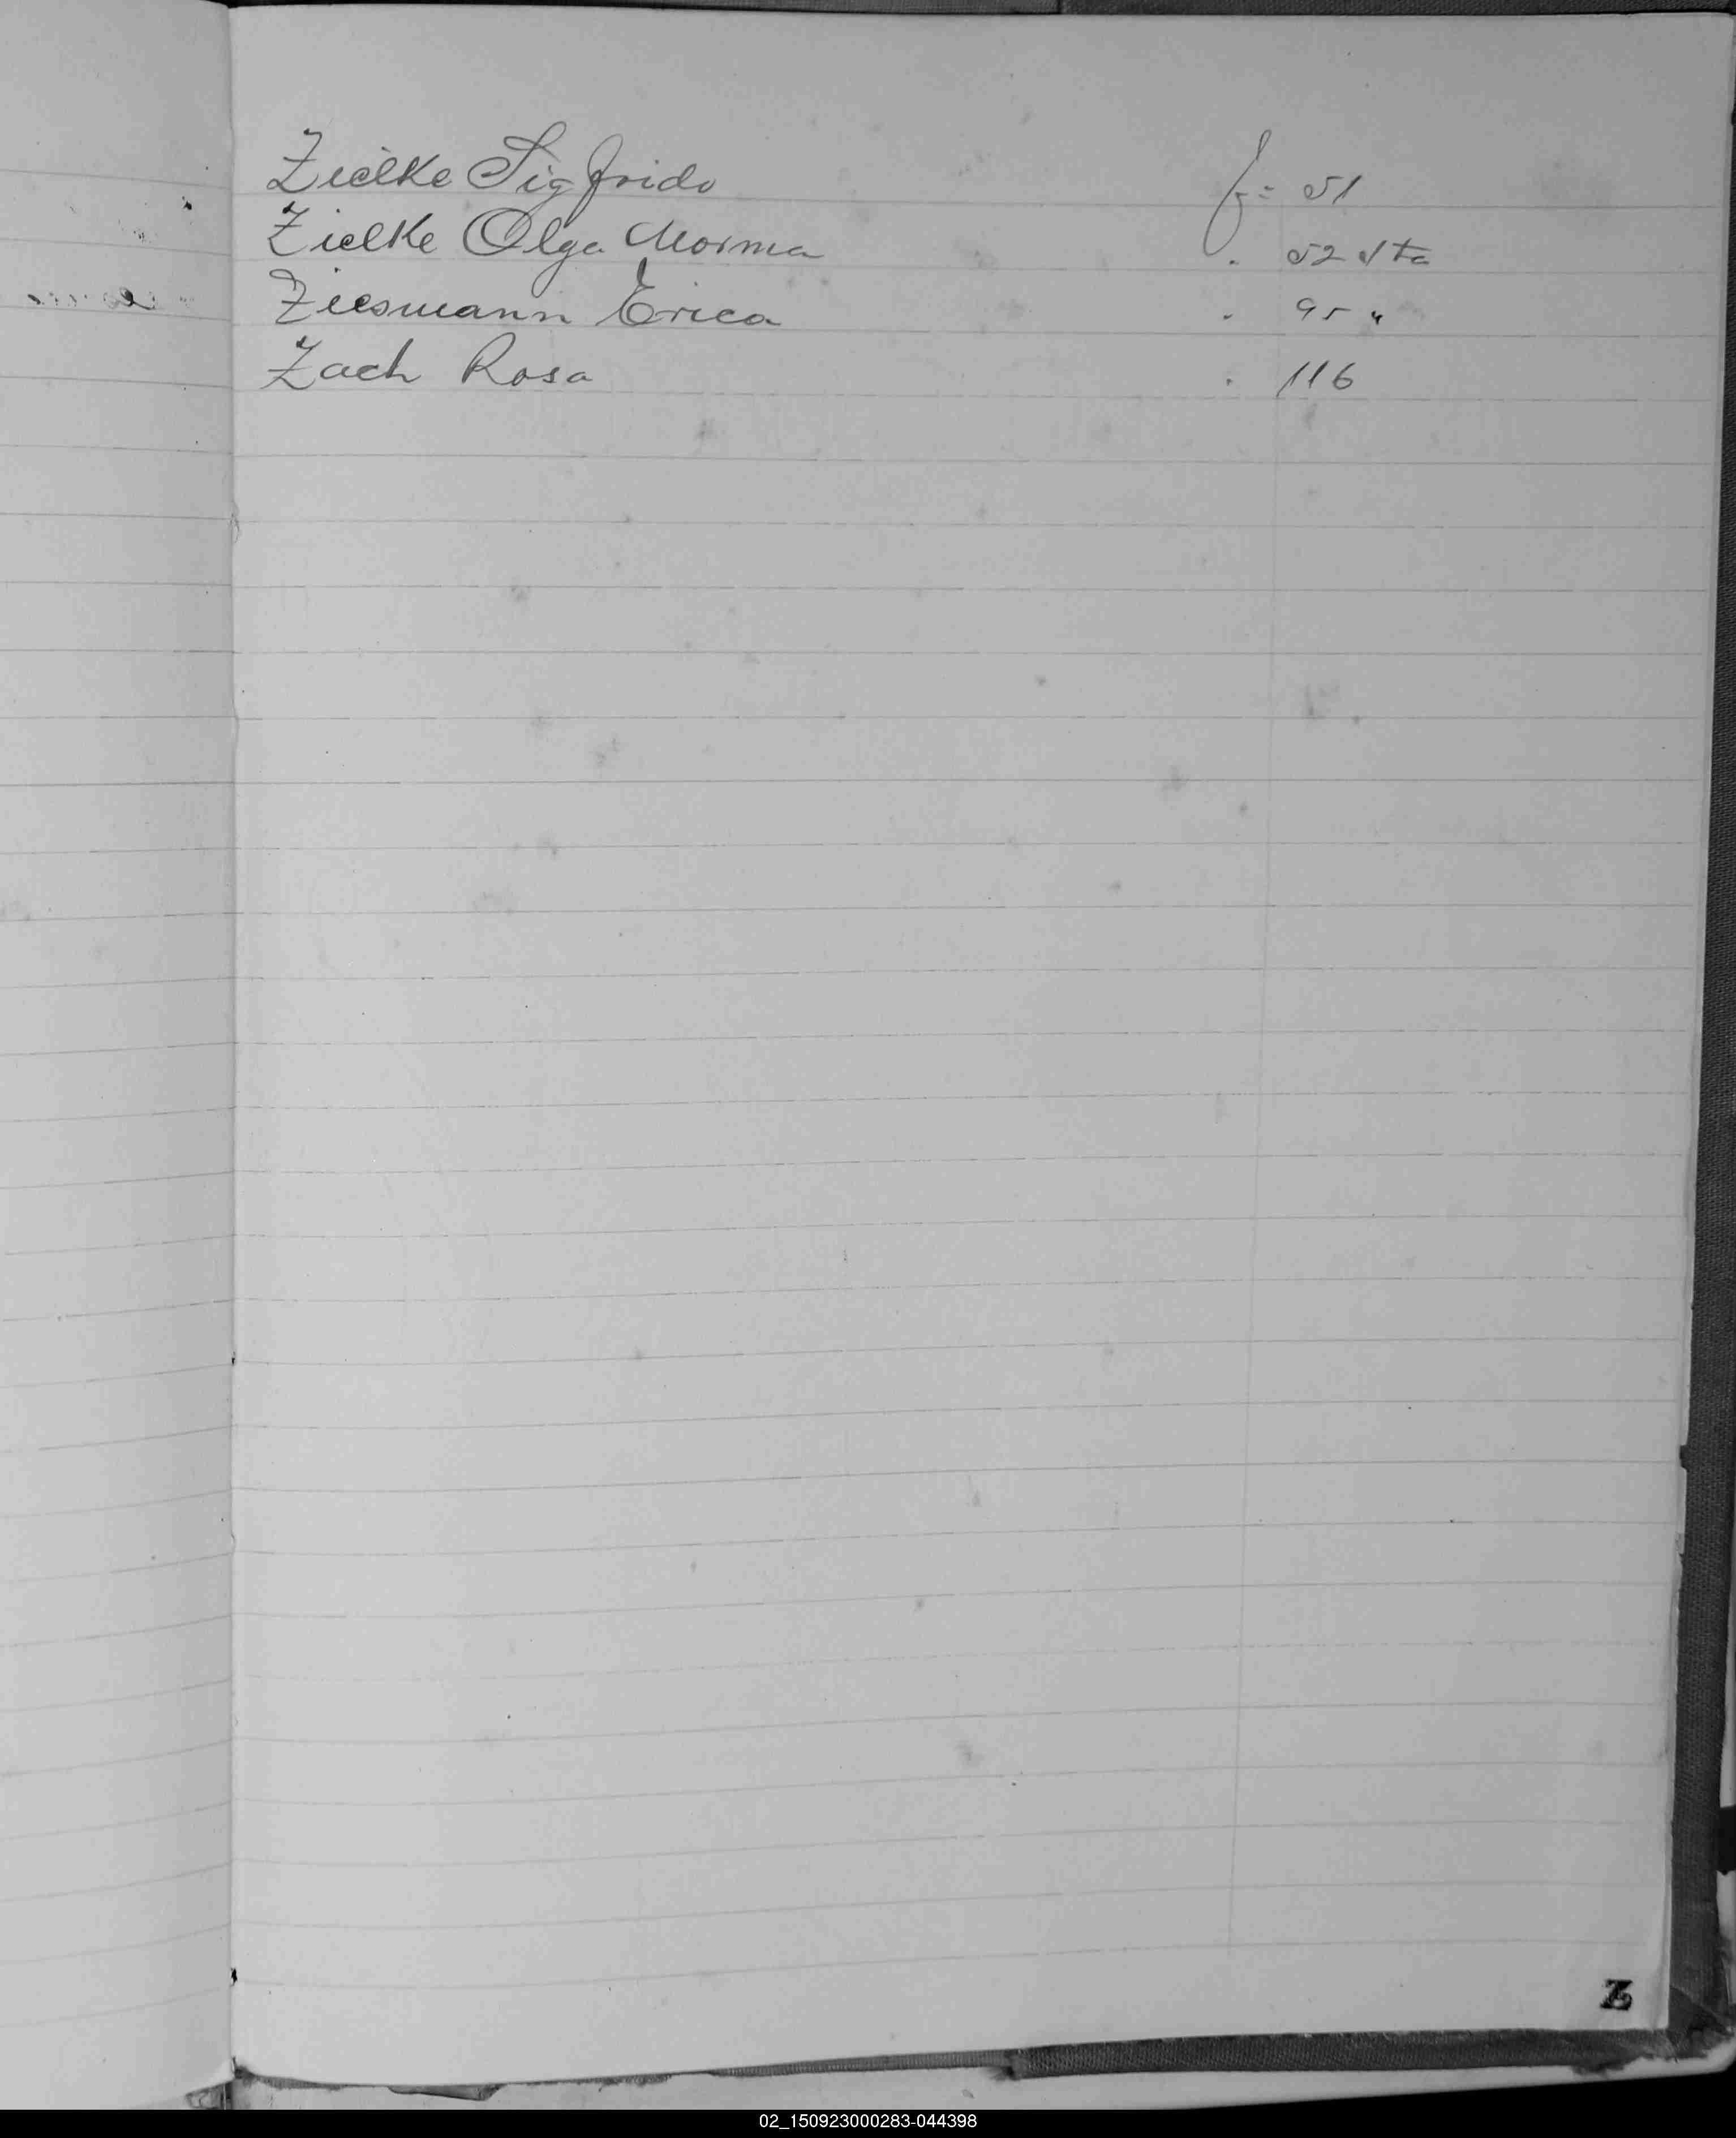 Zielke Sigfrido f= 51
Zielke Olga Norma . 52 vta
Ziesmann Erica . 95 "
Zach Rosa . 116
Z
02_150923000283-044398